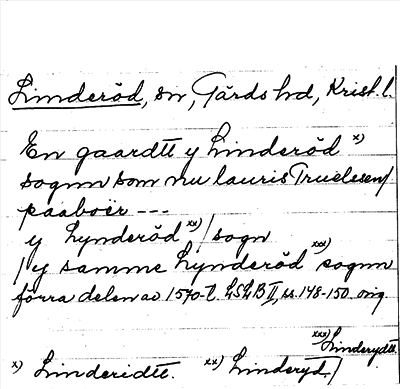 Linderöd, sn, Gärds hd, Krist. l.
En gaardtt y Linderöd x)
sognn som nu lauris Truelsenn/
paaboer ---
y Lynderöd xx) / sogn
/ y samme Lynderöd xxx) sognn
förra delen av 1570-t. LSLB II, ss. 148-150. orig.
xxx) Linderydtt.
x) Linderidtt. xx) Linderyd /